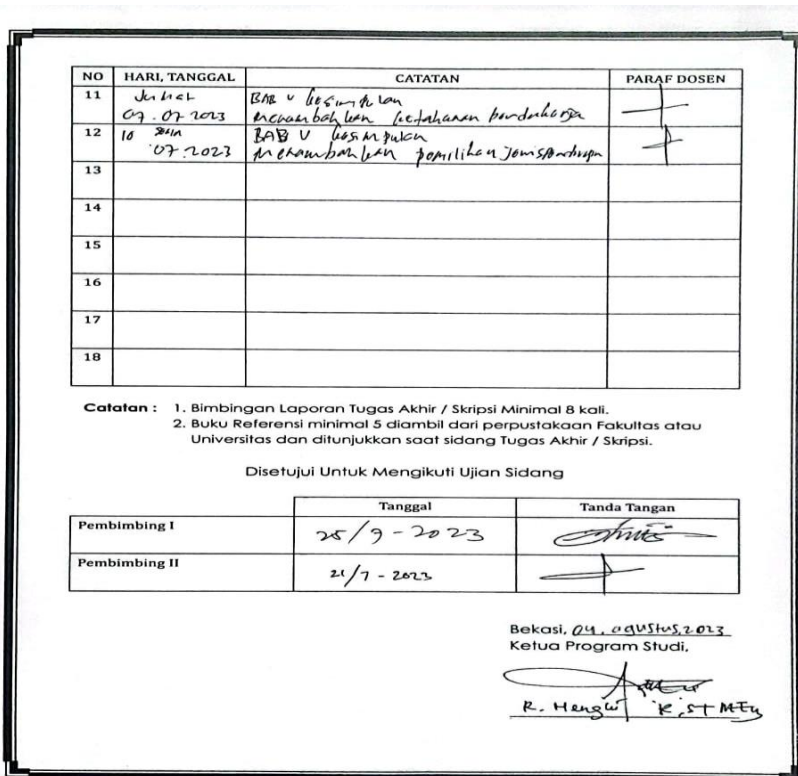 NO HARI, TANGGAL CATATAN PARAF DOSEN
11 Jumat BAB V kesimpulan
07.07.2023 menambahkan ketahanan
12 10 Senin BAB V kesimpulan
07.2023 menambahkan pemilihan jenis
13
14
15
16
17
18
Catatan : 1. Bimbingan Laporan Tugas Akhir / Skripsi Minimal 8 kali.
2. Buku Referensi minimal 5 diambil dari perpustakaan Fakultas atau
Universitas dan ditunjukkan saat sidang Tugas Akhir / Skripsi.
Disetujui Untuk Mengikuti Ujian Sidang
Tanggal Tanda Tangan
Pembimbing I 25/9-2023
Pembimbing II 21/7-2023
Bekasi, 04. agustus,2023
Ketua Program Studi,
R. Hengki K, ST MEng